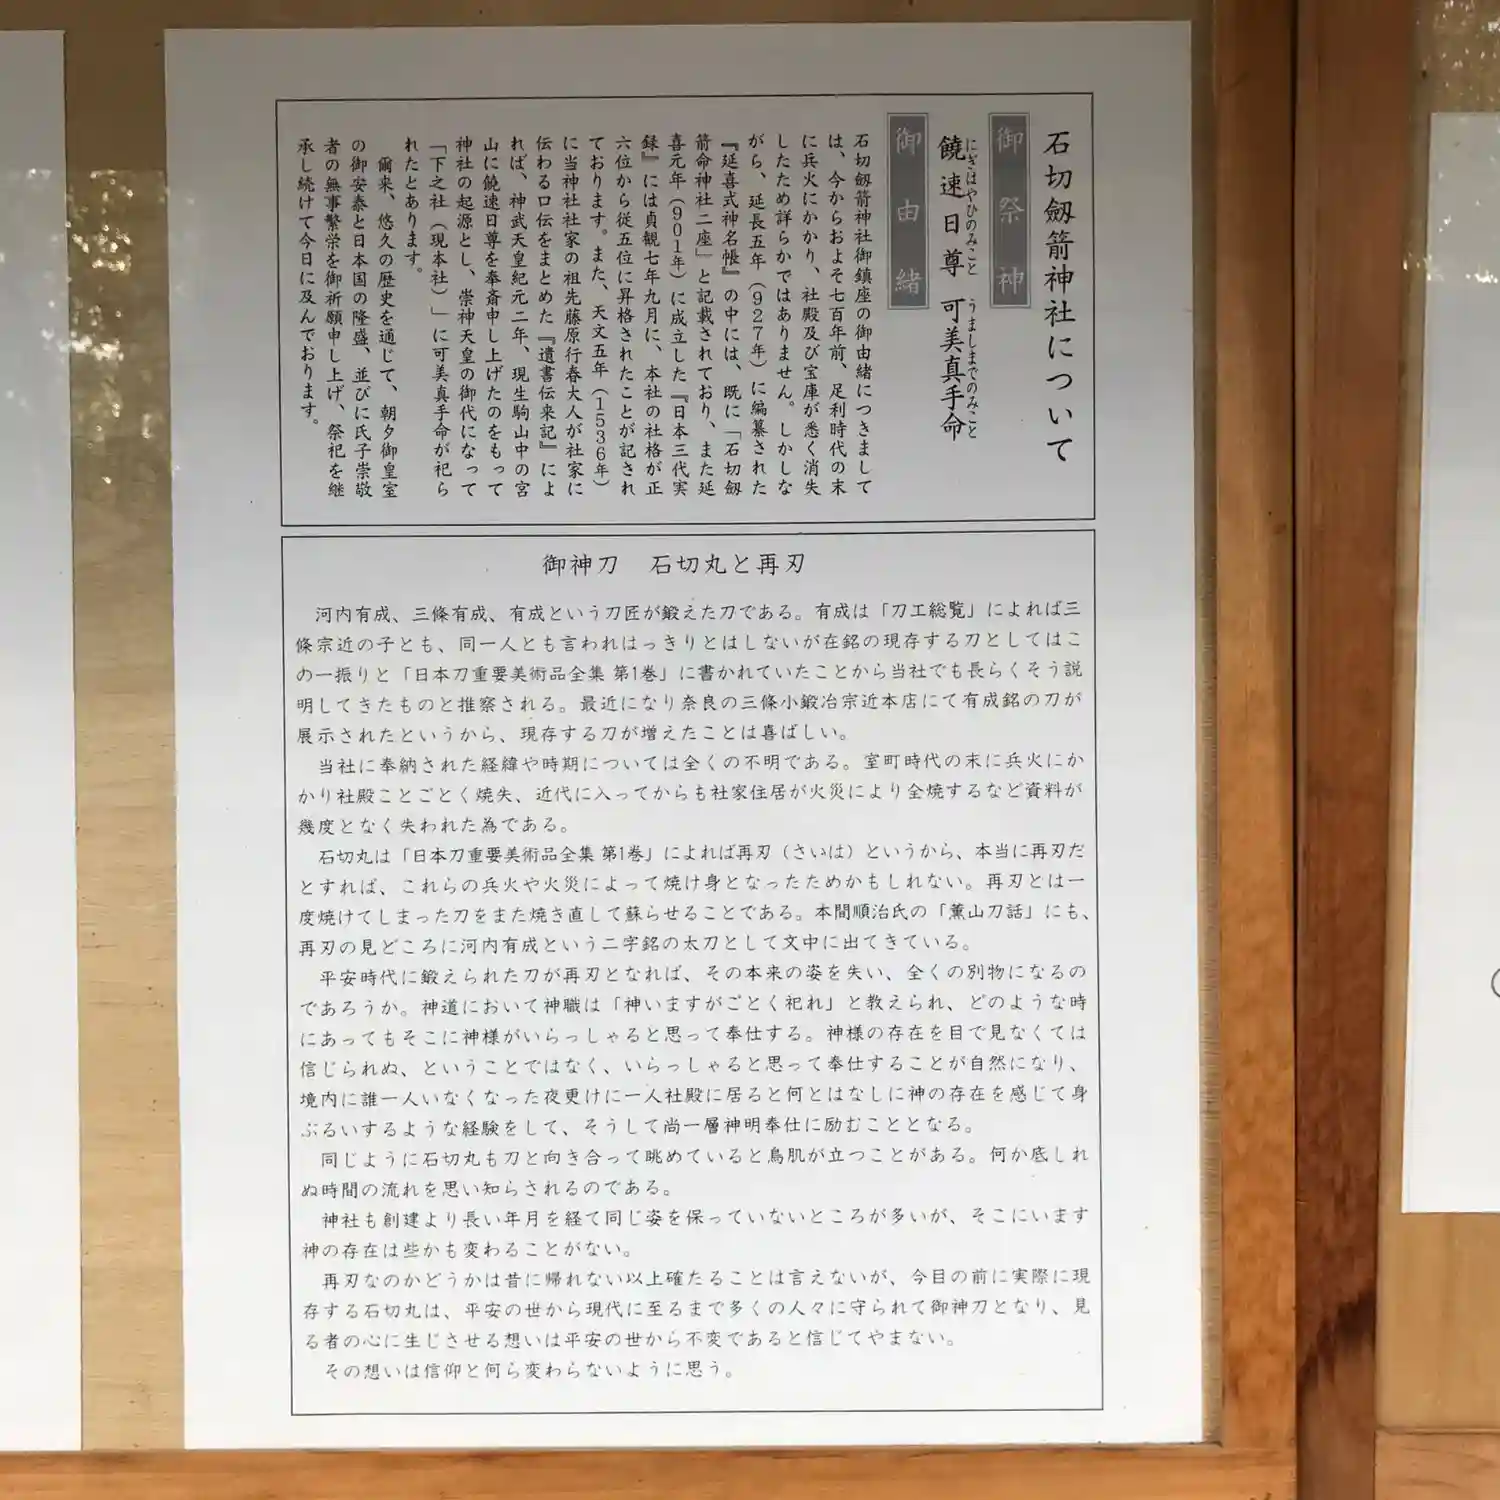 石切劔箭神社について
御祭神
饒速日尊 可美真手命
にぎはやひのみこと うましまでのみこと
御由緒
石切劔箭神社御鎮座の御由緒につきまして
は、今からおよそ七百年前、足利時代の末
に兵火にかかり、社殿及び宝庫が悉く消失
したため詳らかではありません。しかしな
がら、延長五年（927年）に編纂された
『延喜式神名帳』の中には、既に「石切劔
箭命神社二座」と記載されており、また延
喜元年（901年）に成立した『日本三代実
録』には貞観七年九月に、本社の社格が正
六位から従五位に昇格されたことが記され
ております。また、天文五年（1536年）
に当神社社家の祖先藤原行春大人が社家に
伝わる口伝をまとめた『遺書伝来記』によ
れば、神武天皇紀元二年、現生駒山中の宮
山に饒速日尊を奉斎申し上げたのをもって
神社の起源とし、崇神天皇の御代になって
「下之社（現本社）」に可美真手命が祀ら
れたとあります。
爾来、悠久の歴史を通じて、朝夕御皇室
の御安泰と日本国の隆盛、並びに氏子崇敬
者の無事繁栄を御祈願申し上げ、祭祀を継
承し続けて今日に及んでおります。
御神刀 石切丸と再刃
河内有成、三條有成、有成という刀匠が鍛えた刀である。有成は「刀工総覧」によれば三
條宗近の子とも、同一人とも言われはっきりとはしないが在銘の現存する刀としてはこ
の一振りと「日本刀重要美術品全集 第1巻」に書かれていたことから当社でも長らくそう説
明してきたものと推察される。最近になり奈良の三條小鍛冶宗近本店にて有成銘の刀が
展示されたというから、現存する刀が増えたことは喜ばしい。
当社に奉納された経緯や時期については全くの不明である。室町時代の末に兵火にか
かり社殿ことごとく焼失、近代に入ってからも社家住居が火災により全焼するなど資料が
幾度となく失われた為である。
石切丸は「日本刀重要美術品全集 第1巻」によれば再刃（さいは）というから、本当に再刃だ
とすれば、これらの兵火や火災によって焼け身となったためかもしれない。再刃とは一
度焼けてしまった刀をまた焼き直して蘇らせることである。本間順治氏の「薫山刀話」にも、
再刃の見どころに河内有成という二字銘の太刀として文中に出てきている。
平安時代に鍛えられた刀が再刃となれば、その本来の姿を失い、全くの別物になるの
であろうか。神道において神職は「神いますがごとく祀れ」と教えられ、どのような時
にあってもそこに神様がいらっしゃると思って奉仕する。神様の存在を目で見なくては
信じられぬ、ということではなく、いらっしゃると思って奉仕することが自然になり、
境内に誰一人いなくなった夜更けに一人社殿に居ると何とはなしに神の存在を感じて身
ぶるいするような経験をして、そうして尚一層神明奉仕に励むこととなる。
同じように石切丸も刀と向き合って眺めていると鳥肌が立つことがある。何か底しれ
ぬ時間の流れを思い知らされるのである。
神社も創建より長い年月を経て同じ姿を保っていないところが多いが、そこにいます
神の存在は些かも変わることがない。
再刃なのかどうかは昔に帰れない以上確たることは言えないが、今目の前に実際に現
存する石切丸は、平安の世から現代に至るまで多くの人々に守られて御神刀となり、見
る者の心に生じさせる想いは平安の世から不変であると信じてやまない。
その想いは信仰と何ら変わらないように思う。